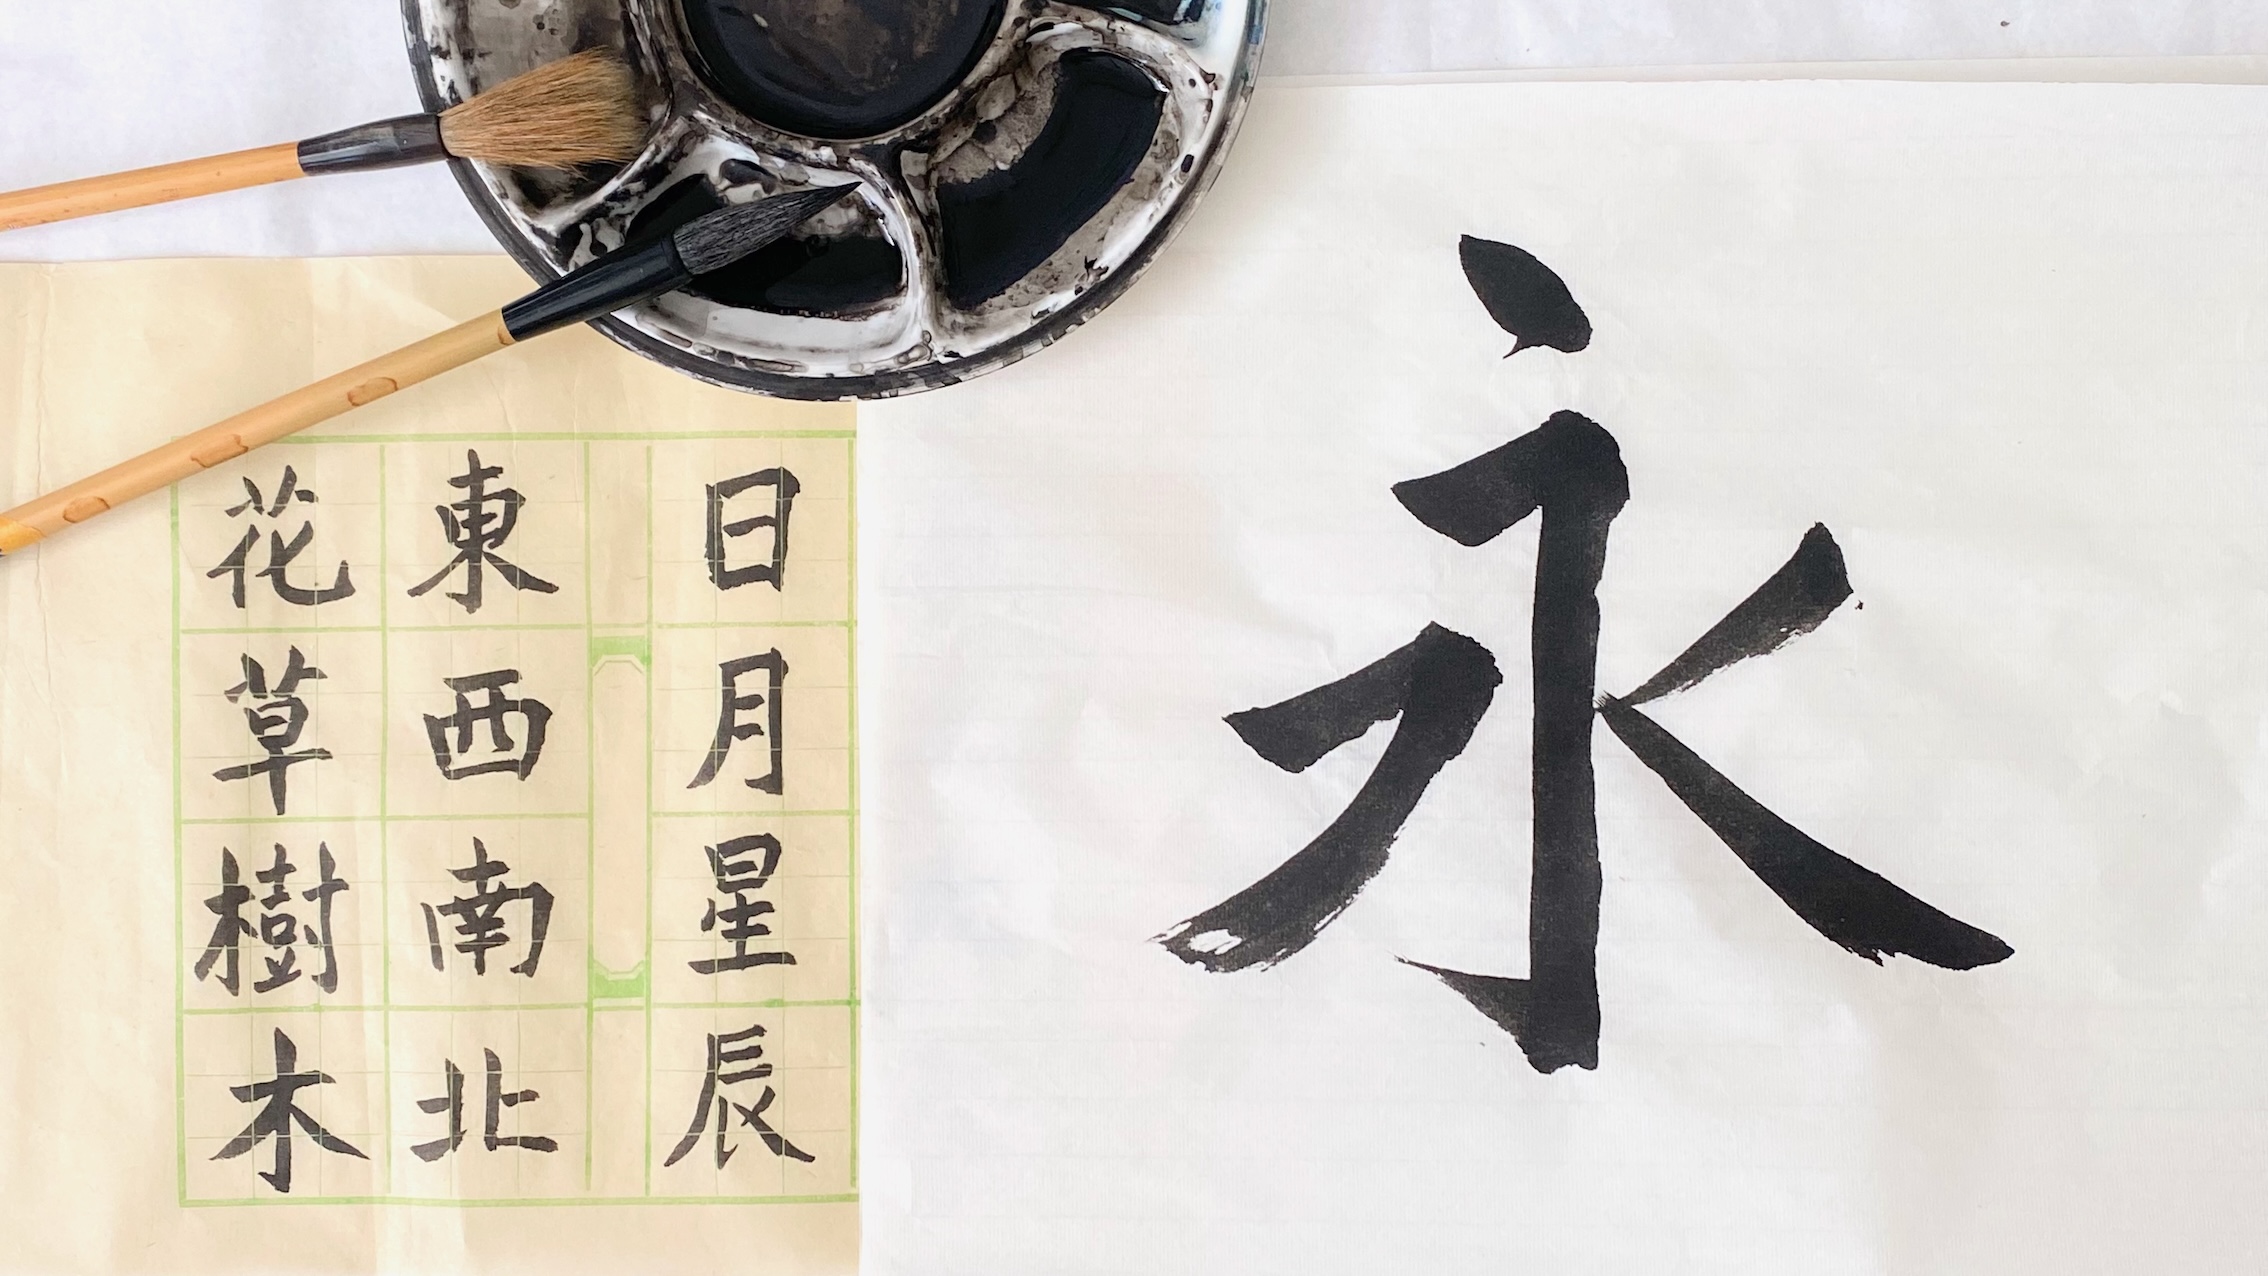 永
日月星辰
東西南北
花草樹木